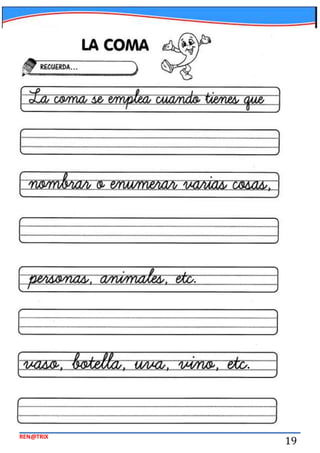 LA COMA
RECUERDA...
La coma se emplea cuando tienes que
nombrar o enumerar varias cosas,
personas, animales, etc.
vaso, botella, uva, vino, etc.
REN@TRIX
19